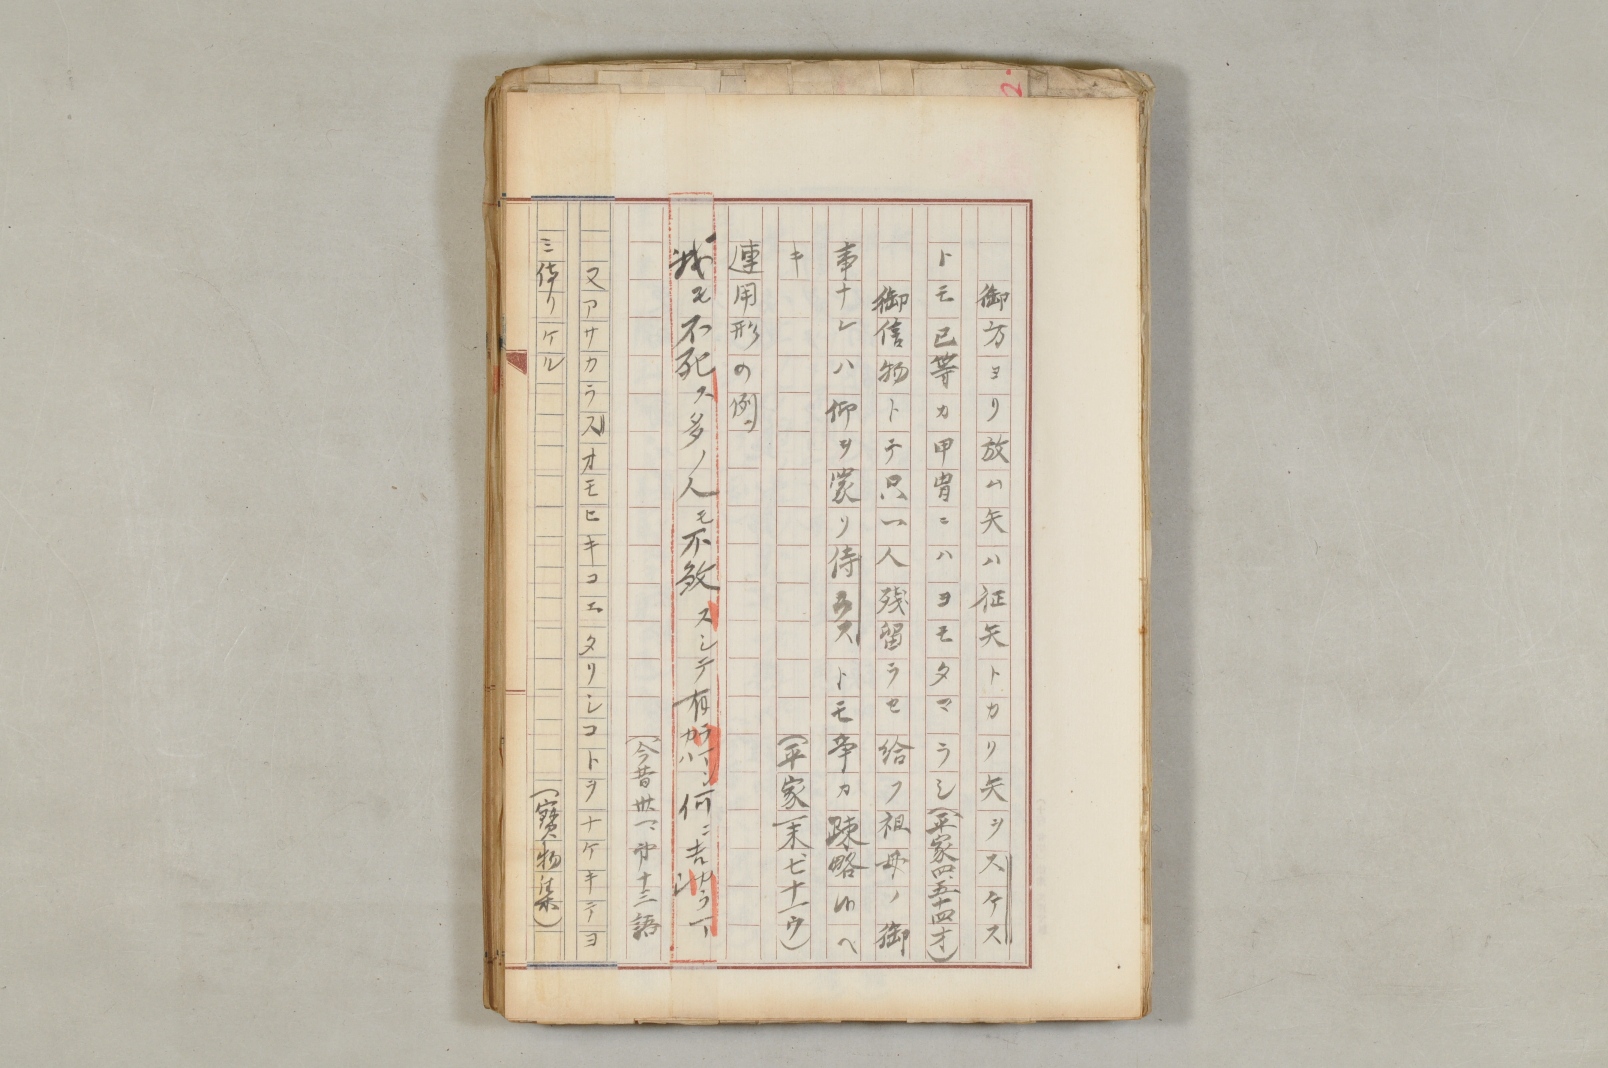 御方ヨリ放ム矢ハ征矢トカリ矢ヲスケス
トモ己等カ甲冑ニハヨモタマラシ(平家四、五十四オ)
御信物トテ只一人残留ラセ給フ祖母ノ御
事ナレハ仰ヲ蒙リ侍ラストモ争カ疎略候ヘ
キ (平家一末七十一ウ)
連用形の例
我モ不死ス多ノ人モ不敏スシテ有ラムハ何ニ吉カラム
(今昔廿 第十三語
又アサカラスオモヒキコエタリシコトヲナケキテヨ
ミ侍リケル (寶物集)
2.